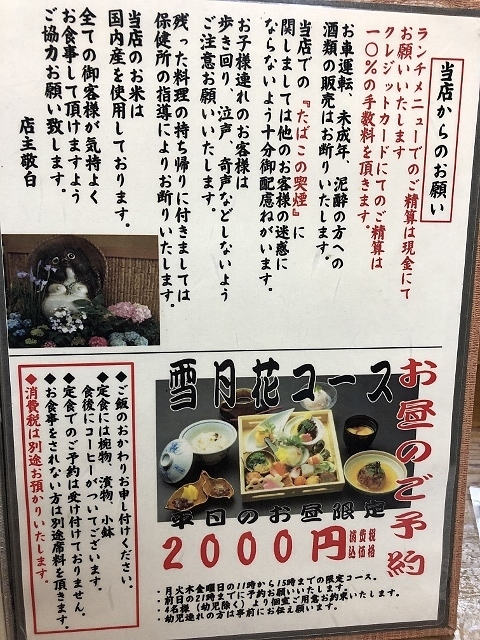 当店からのお願い
ランチメニューでのご精算は現金にて
お願いいたします
クレジットカードにてのご精算は
一〇%の手数料を頂きます。
お車運転、未成年、泥酔の方への
酒類の販売はお断りいたします。
当店での『たばこの喫煙』に
関しましては他のお客様の迷惑に
ならないよう十分御配慮ねがいます。
お子様連れのお客様は
歩き回り、泣声、奇声などしないよう
ご注意お願いいたします。
残った料理の持ち帰りに付きましては
保健所の指導によりお断りいたします。
当店のお米は
国内産を使用しております。
全ての御客様が気持よく
お食事して頂けますよう
ご協力お願い致します。
店主敬白
お昼のご予約
雪月花コース
平日のお昼限定
2000円消費税込価格
・月火木金曜日の11時から15時までの限定コース。
・前日の21時までに予約お願いいたします。
・4名様(幼児除く)より個室ご用意お約束いたします。
・幼児連れの方は事前にお伝え願います。
◆ご飯のおかわりお申し付けください。
◆定食には椀物、漬物、小鉢
食後にコーヒーがついてございます。
◆定食でのご予約は受け付けておりません。
◆お食事をされない方は別途席料を頂きます。
◆消費税は別途お預かりいたします。